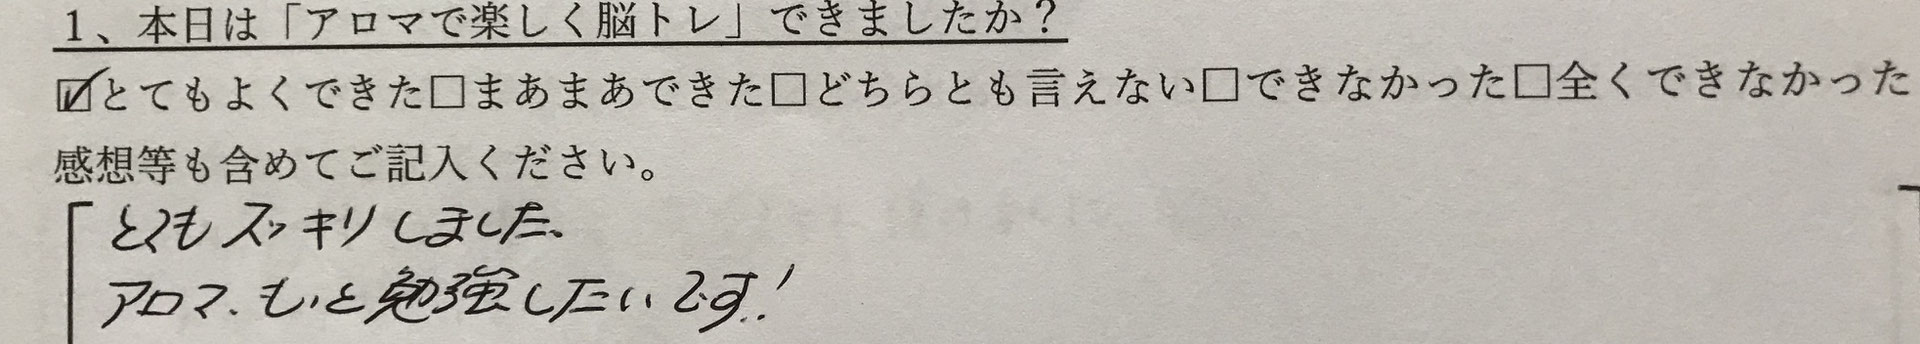 1、本日は「アロマで楽しく脳トレ」できましたか？
☑とてもよくできた□まあまあできた□どちらとも言えない□できなかった□全くできなかった
感想等も含めてご記入ください。
とてもスッキリしました、
アロマ、もっと勉強したいです!